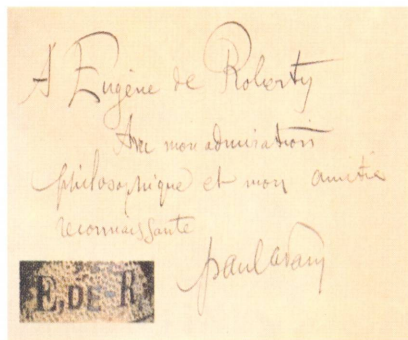 A Eugène de Roberty
Avec mon admiration
philosophique et mon amitié
reconnaissante
paul adam
E. DE R.